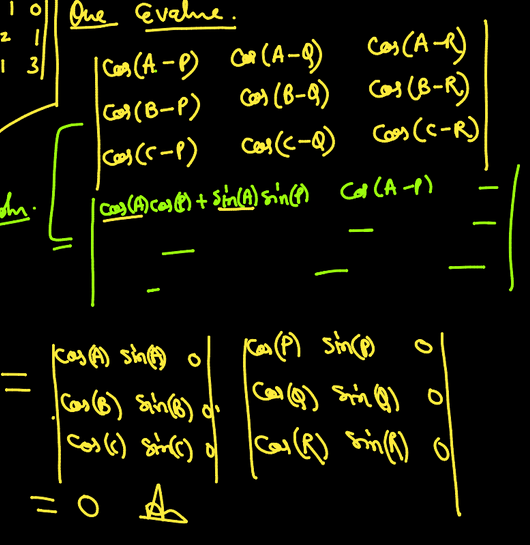 1 0
2 1
1 3
Que Evalue.
cos(A-P) cos(A-Q) cos(A-R)
cos(B-P) cos(B-Q) cos(B-R)
cos(C-P) cos(C-Q) cos(C-R)
= cos(A)cos(P) + sin(A)sin(P) cos(A-P) -
- - -
- - -
= cos(A) sin(A) 0 cos(P) sin(P) 0
cos(B) sin(B) 0 cos(Q) sin(Q) 0
cos(C) sin(C) 0 cos(R) sin(R) 0
= 0